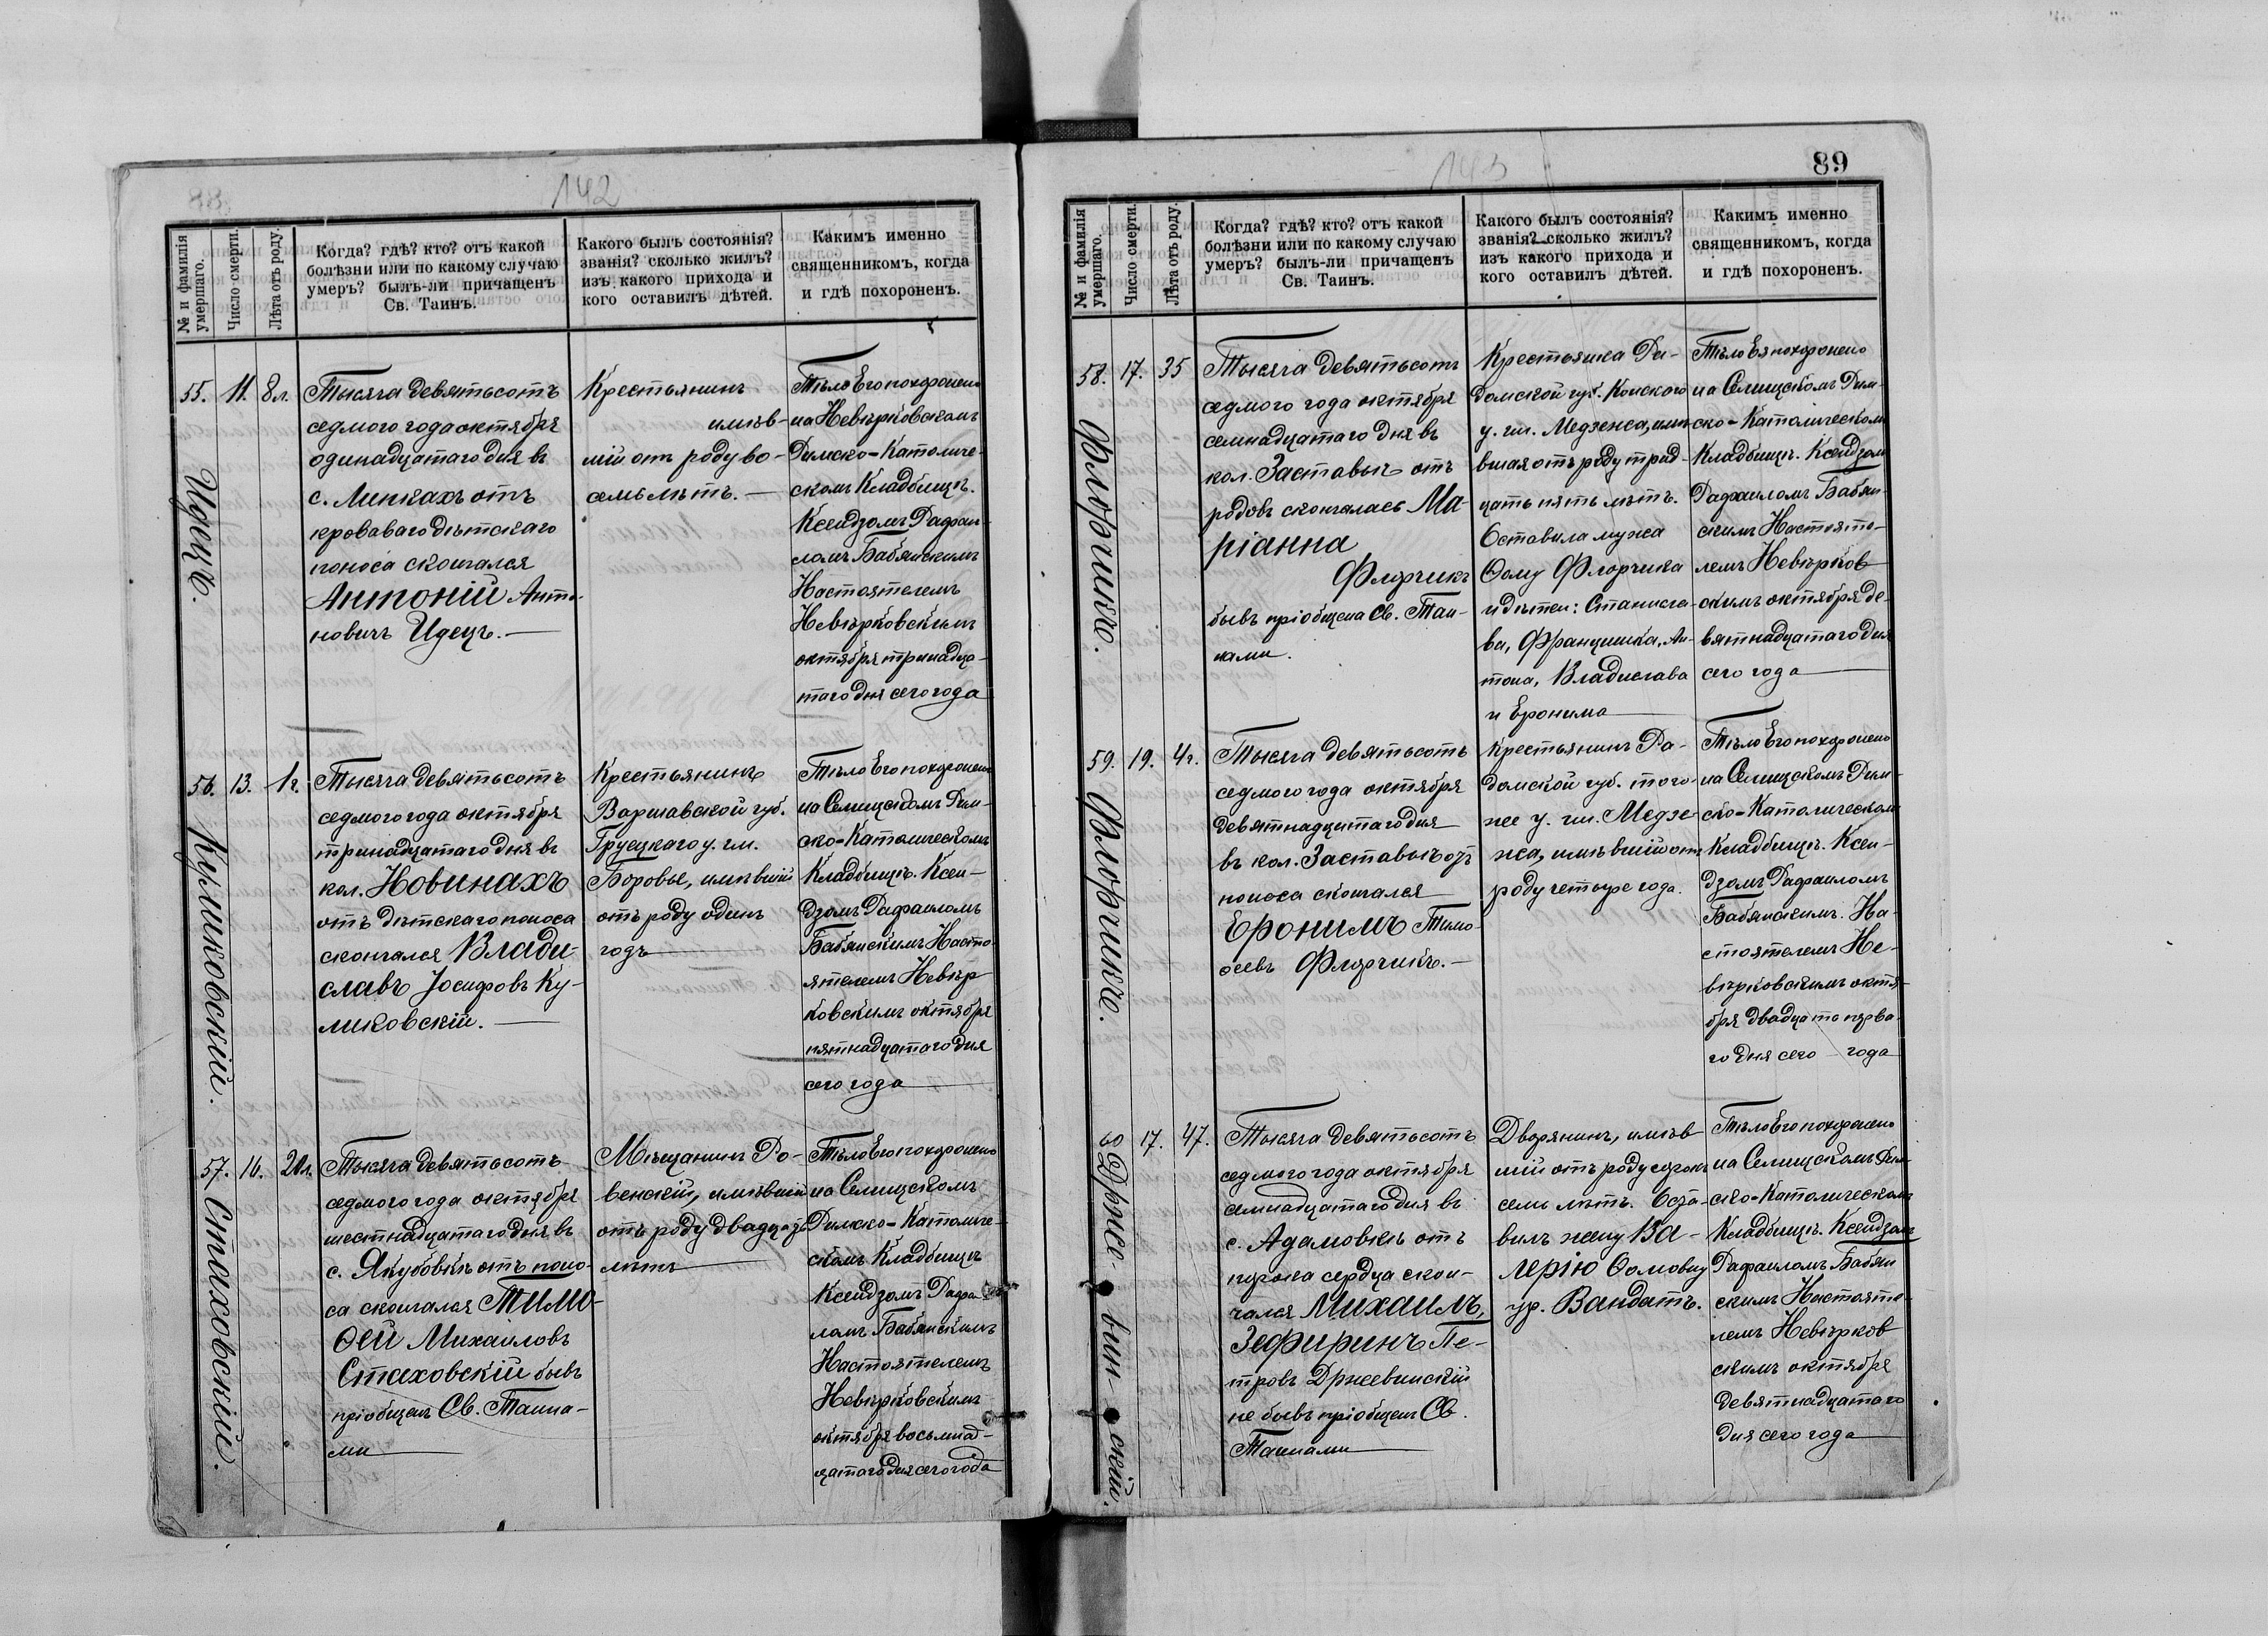 142
№ и фамилія умершаго.
Число смерти.
Лѣта отъ роду.
Когда? гдѣ? кто? отъ какой
болѣзни или по какому случаю
умеръ? былъ-ли причащенъ
Св. Таинъ.
Какого былъ состоянія?
званія? сколько жилъ?
изъ какого прихода и
кого оставилъ дѣтей.
Какимъ именно
священникомъ, когда
и гдѣ похороненъ.
55.
Идецъ.
11.
8 л.
Тысяча девятьсотъ
седмого года октября
одинадцатаго дня въ
с. Липкахъ отъ
кроваваго дѣтскаго
поноса скончался
Антоній Анто-
новичъ Идецъ.—
Крестьянинъ
имѣв-
шій отъ роду во-
семь лѣтъ.—
Тѣло Его похоронено
на Невѣрковскомъ
Римско-Католиче-
скомъ Кладбищѣ.
Ксендзомъ Рафаи-
ломъ Бабянскимъ
Настоятелемъ
Невѣрковскимъ
октября тринадца-
таго дня сего года
56.
Куликовскій.
13.
1 г.
Тысяча девятьсотъ
седмого года октября
тринадцатаго дня въ
кол. Новинахъ
отъ дѣтскаго поноса
скончался Влади-
славъ Іосифовъ Ку-
ликовскій.—
Крестьянинъ
Варшавской губ.
Груецкаго у. гм.
Боровье, имѣвшій
отъ роду одинъ
годъ
Тѣло Его похоронено
на Селищскомъ Рим-
ско-Католическомъ
Кладбищѣ. Ксен-
дзомъ Рафаиломъ
Бабянскимъ Насто-
ятелемъ Невѣр
ковскимъ октября
пятнадцатаго дня
сего года
57.
Стаховскій.
16.
20 л.
Тысяча девятьсотъ
седмого года октября
шестнадцатаго дня въ
с. Якубовкѣ отъ поно-
са скончался Тимо-
ѳей Михаиловъ
Стаховскій бывъ
пріобщенъ Св. Таина-
ми
Мѣщанинъ Ро-
венскій, имѣвшій
отъ роду двадцать
лѣтъ
Тѣло Его похоронено
на Селищскомъ
Римско-Католиче-
скомъ Кладбищѣ
Ксендзомъ Рафаи-
ломъ Бабянскимъ
Настоятелемъ
Невѣрковскимъ
октября восьмнад-
цатаго дня сего года
143
89
№ и фамилія умершаго.
Число смерти.
Лѣта отъ роду.
Когда? гдѣ? кто? отъ какой
болѣзни или по какому случаю
умеръ? былъ-ли причащенъ
Св. Таинъ.
Какого былъ состоянія?
званія? сколько жилъ?
изъ какого прихода и
кого оставилъ дѣтей.
Какимъ именно
священникомъ, когда
и гдѣ похороненъ.
58.
Флорчикъ.
17.
35
Тысяча девятьсотъ
седмого года октября
семнадцатаго дня въ
кол. Заставье отъ
родовъ скончалась Ма-
ріанна
Флорчикъ
бывъ пріобщена Св. Таи-
нами.
Крестьянка Ра-
домской губ. Конского
у. гм. Медзенса, имѣ
вшая отъ роду трид-
цать пять лѣтъ.
Оставила мужа
Ѳому Флорчика
и дѣтей: Станисла-
ва, Францишка, Ан-
тона, Владислава
и Еронима
Тѣло Ея похоронено
на Селищскомъ Рим-
ско-Католическомъ
Кладбищѣ. Ксендзомъ
Рафаиломъ Бабян-
скимъ Настояте-
лемъ Невѣрков
скимъ октября де-
вятнадцатаго дня
сего года
59.
Флорчикъ.
19.
4 г.
Тысяча девятьсотъ
седмого года октября
девятнадцатаго дня
въ кол. Заставье отъ
поноса скончался
Еронимъ Тимо-
ѳеевъ Флорчикъ.—
Крестьянинъ Ра-
домской губ. того-
же у. гм. Медзе-
нса, имѣвшій отъ
роду четыре года.
Тѣло Его похоронено
на Селищскомъ Рим-
ско-Католическомъ
Кладбищѣ. Ксен-
дзомъ Рафаиломъ
Бабянскимъ. На-
стоятелемъ Не-
вѣрковскимъ октя-
бря двадцать перва-
го дня сего года
60
Држевинскій.
17.
47.
Тысяча девятьсотъ
седмого года октября
семнадцатаго дня въ
с. Адамовкѣ отъ
порока сердца скон-
чался Михаилъ,
Зефиринъ Пе-
тровъ Држевинскій
не бывъ пріобщенъ Св.
Таинами
Дворянинъ, имѣв
шій отъ роду сорокъ
семь лѣтъ. Оста-
вилъ жену Ва-
лерію Ѳомовну
ур. Вандатъ.
Тѣло Его похоронено
на Селищскомъ Рим
ско-Католическомъ
Кладбищѣ. Ксендзомъ
Рафаиломъ Бабян
скимъ Настояте-
лемъ Невѣрков
скимъ октября
девятнадцатаго
дня сего года